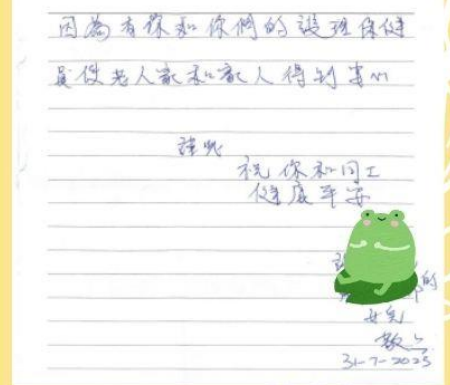 因為有你和你們的護理保健
員使老人家和家人得到安心
謹此
祝你和同工
健康平安
的
女兒
敬上
31-7-2025